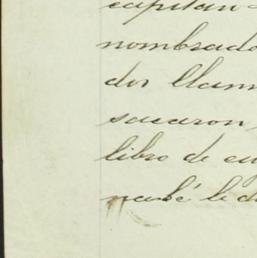 capitan
nombrado
dor llam
sacaron
libro de cu
le d